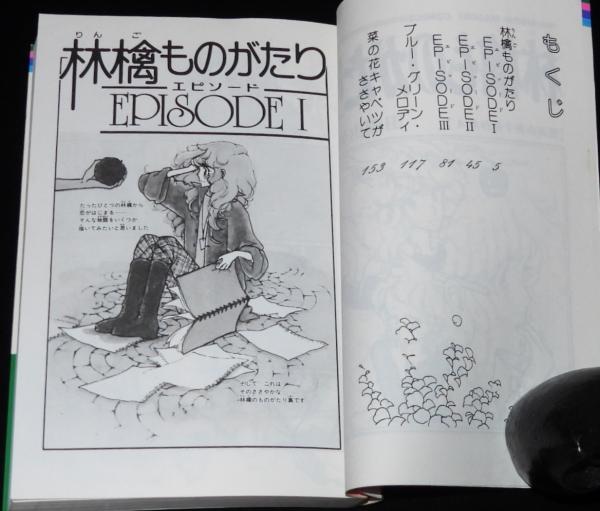 もくじ
りんご
林檎ものがたり
エピソード
EPISODE I
5
エピソード
EPISODE II
45
エピソード
EPISODE III
81
ブルー・グリーン・メロディ
117
菜の花キャベツがささやいて
153
りんご
「林檎ものがたり
エピソード
EPISODE I
たったひとつの林檎から
恋がはじまる……
そんな物語をいくつか
描いてみたいと思いました
そして これは
そのささやかな
林檎のものがたり集です